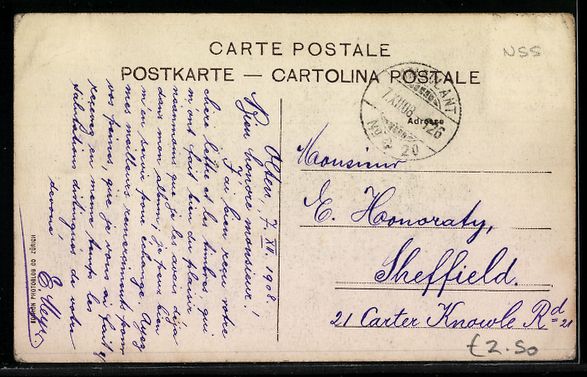 CARTE POSTALE
POSTKARTE — CARTOLINA POSTALE
NSS
AMBULANT
7.XII.08
No 20
Adresse
Olten, 7. XII. 1908.
Bien honoré monsieur!
J'ai bien reçu votre
chère lettre et les timbres, qui
m'ont fait bien du plaisir
néanmoins que je les avais déjà
dans mon album, je peux bien
m'en servir pour échange. Ayez
mes meilleurs remerciments pour
vos peines, que je vous ai fait et
recevez en même temps les
salutations distinguées de votre
dévoué
E. Meyer
Monsieur
E. Honoraty,
Sheffield.
21 Carter Knowle Rd
21
£2.50
PHOTOGLOB CO. ZÜRICH